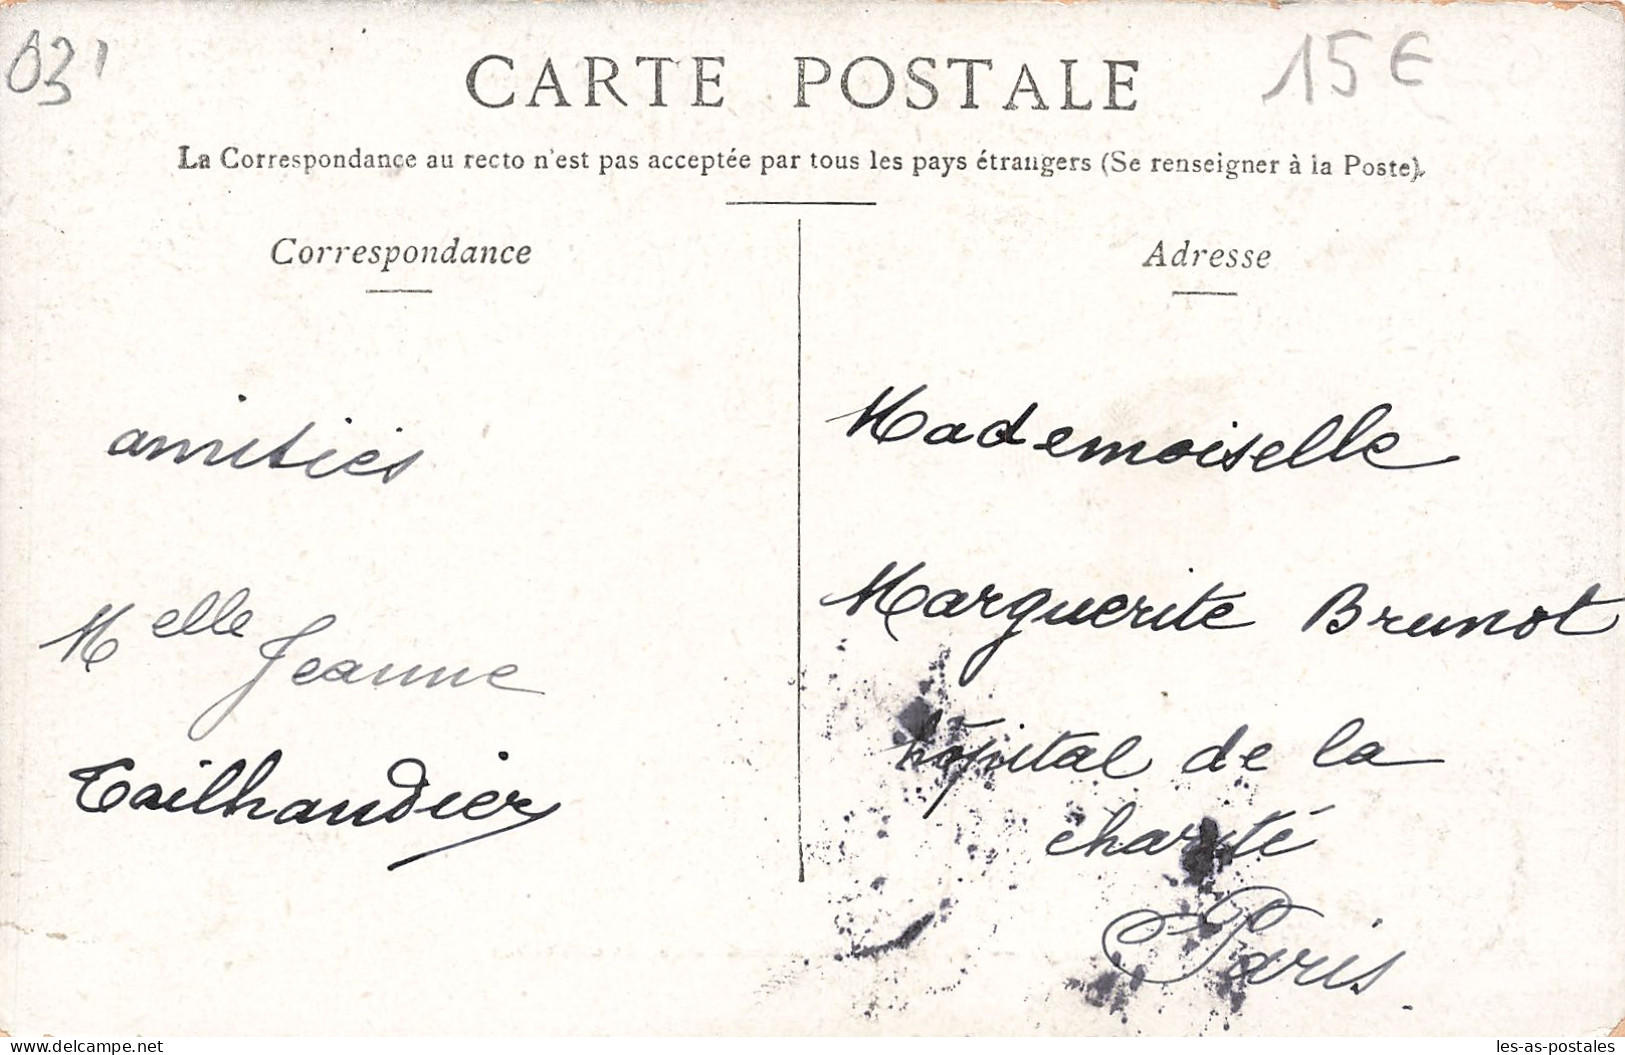 03'
15€
CARTE POSTALE
La Correspondance au recto n'est pas acceptée par tous les pays étrangers (Se renseigner à la Poste).
Correspondance
amitiés
Melle Jeanne
Tailhandier
Adresse
Mademoiselle
Marguerite Brunot
hôpital de la
charité
Paris.
delcampe.net
les-as-postales